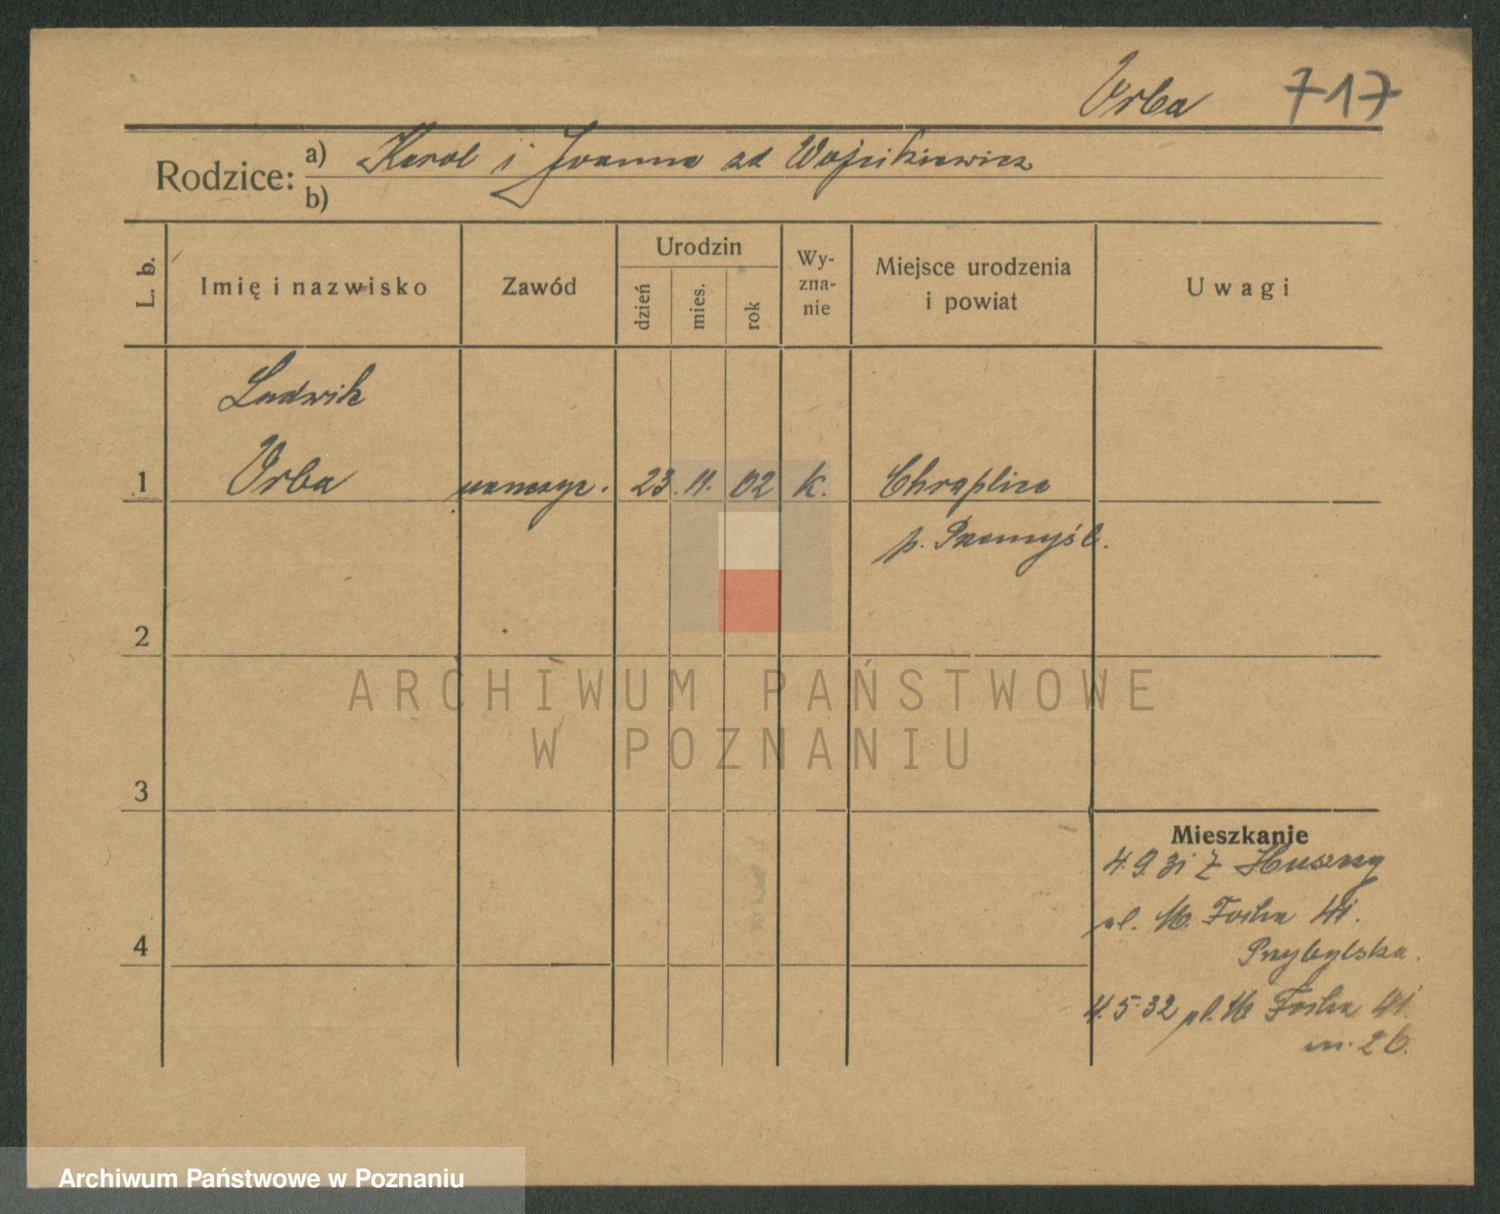 Urba 717
Rodzice: a) Karol i Joanna zd Wojcikiewicz
b)
L. b. Imię i nazwisko Zawód Urodzin dzień mies. rok Wyznanie Miejsce urodzenia i powiat Uwagi
Ludwik
1 Urba nauczyc. 23. 11. 02 k. Chraplice
p. Przemyśl.
2
ARCHIWUM PAŃSTWOWE
W POZNANIU
3
Mieszkanie
4.9.31 z
pl. M. Focha 41.
4 Przybylska.
4.5.32 pl. M Focha 41
m. 26.
Archiwum Państwowe w Poznaniu